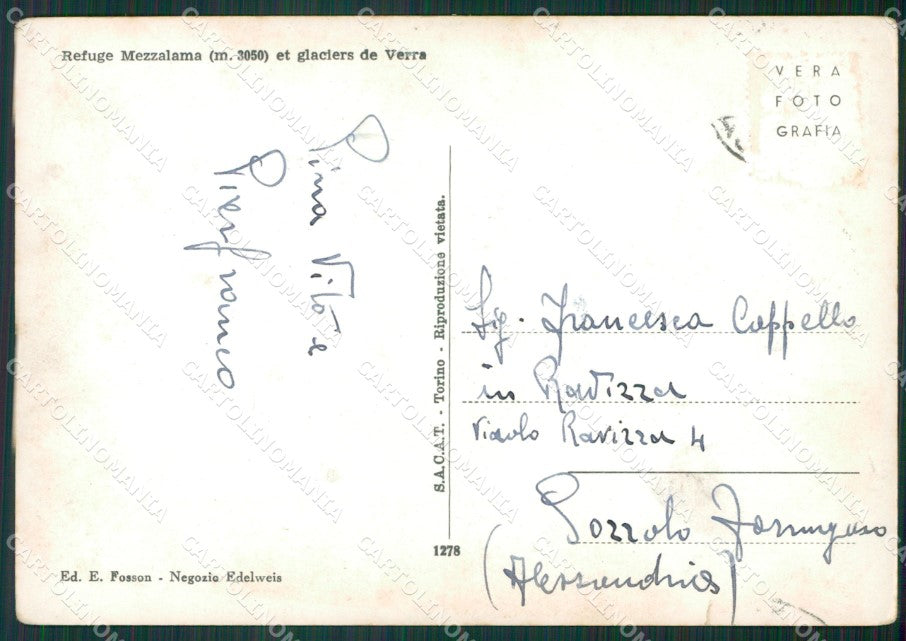 Refuge Mezzalama (m. 3050) et glaciers de Verra
VERA
FOTO
GRAFIA
Pina Vito e
Pierfranco
S.A.C.A.T. - Torino - Riproduzione vietata.
Sig. Francesca Cappello
in Ravizza
Vicolo Ravizza 4
Pozzolo Formigaro
(Alessandria)
1278
Ed. E. Fosson - Negozio Edelweis
CARTOLINOMANIA